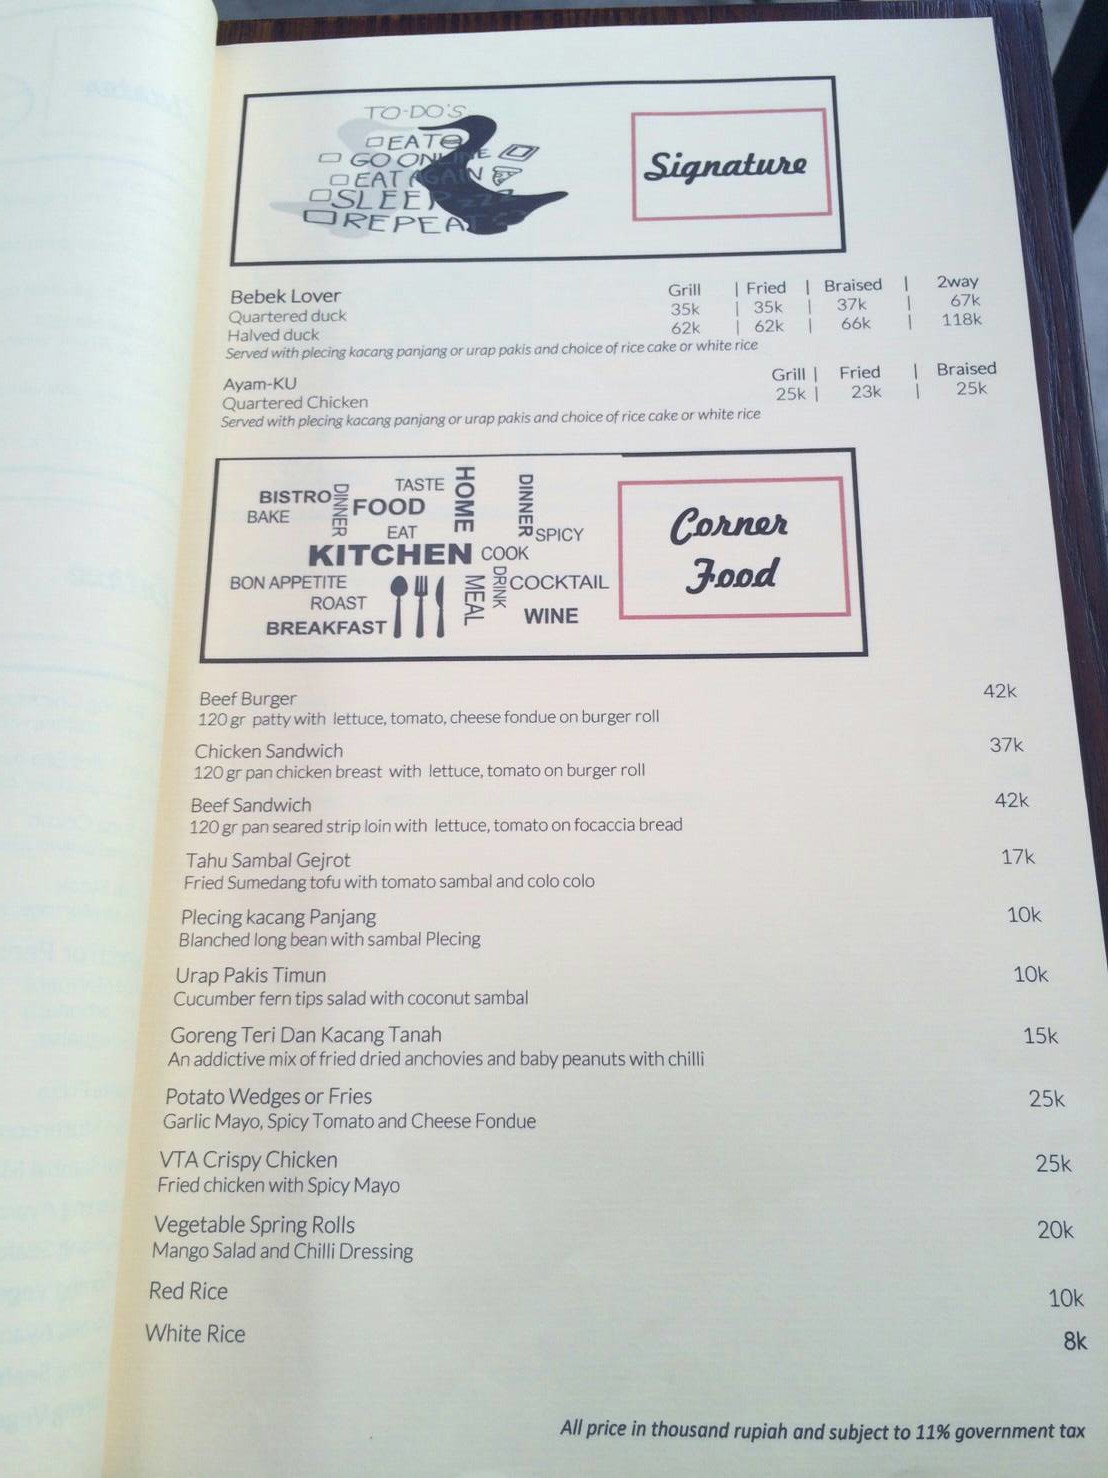 TO-DO'S
EAT
GO ONLINE
EAT AGAIN
SLEEP ZZZ
REPEAT
Signature
Bebek Lover Grill | Fried | Braised | 2way
Quartered duck 35k | 35k | 37k | 67k
Halved duck 62k | 62k | 66k | 118k
Served with plecing kacang panjang or urap pakis and choice of rice cake or white rice
Ayam-KU Grill | Fried | Braised
Quartered Chicken 25k | 23k | 25k
Served with plecing kacang panjang or urap pakis and choice of rice cake or white rice
BISTRO DINNER TASTE HOME DINNER
BAKE FOOD
EAT SPICY
KITCHEN COOK
BON APPETITE MEAL DRINK COCKTAIL
ROAST WINE
BREAKFAST
Corner
Food
Beef Burger 42k
120 gr patty with lettuce, tomato, cheese fondue on burger roll
Chicken Sandwich 37k
120 gr pan chicken breast with lettuce, tomato on burger roll
Beef Sandwich 42k
120 gr pan seared strip loin with lettuce, tomato on focaccia bread
Tahu Sambal Gejrot 17k
Fried Sumedang tofu with tomato sambal and colo colo
Plecing kacang Panjang 10k
Blanched long bean with sambal Plecing
Urap Pakis Timun 10k
Cucumber fern tips salad with coconut sambal
Goreng Teri Dan Kacang Tanah 15k
An addictive mix of fried dried anchovies and baby peanuts with chilli
Potato Wedges or Fries 25k
Garlic Mayo, Spicy Tomato and Cheese Fondue
VTA Crispy Chicken 25k
Fried chicken with Spicy Mayo
Vegetable Spring Rolls 20k
Mango Salad and Chilli Dressing
Red Rice 10k
White Rice 8k
All price in thousand rupiah and subject to 11% government tax